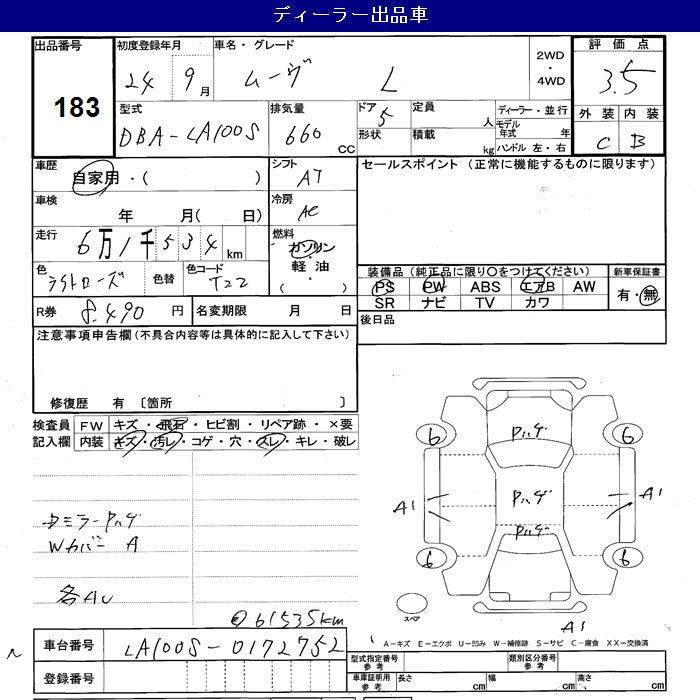 ディーラー出品車
出品番号 183
初度登録年月 24 9月
車名・グレード ムーヴ L
2WD・4WD
評価点 3.5
外装 C 内装 B
型式 DBA-LA100S
排気量 660 CC
ドア 5
形状
定員 人
積載 kg
ディーラー・並行
モデル年式 年
ハンドル 左・右
車歴 自家用・( )
シフト AT
セールスポイント (正常に機能するものに限ります)
車検 年 月( 日)
冷房 AC
走行 6万1千534km
燃料 ガソリン 軽油 ( )
色 ライトローズ
色替
色コード T22
装備品(純正品に限り○をつけてください)
新車保証書
PS PW ABS エアB AW
有・無
SR ナビ TV カワ
R券 8,490円
名変期限 月 日
後日品
注意事項申告欄(不具合内容等は具体的に記入して下さい)
修復歴 有 〔箇所 〕
検査員記入欄
FW キズ・飛石・ヒビ割・リペア跡・×要
内装 キズ・汚レ・コゲ・穴・スレ・キレ・破レ
Pハゲ
6 6
Pハゲ
A1 A1
Pハゲ
6 6
スペア
A1
ミラーPハゲ
Wカバー A
各AU
61535km
車台番号 LA100S-0172752
登録番号
A-キズ E-エクボ U-凹み W-補修跡 S-サビ C-腐食 XX-交換済
型式指定番号 参考
類別区分番号 参考
車庫証明用 参考
長さ cm 幅 cm 高さ cm